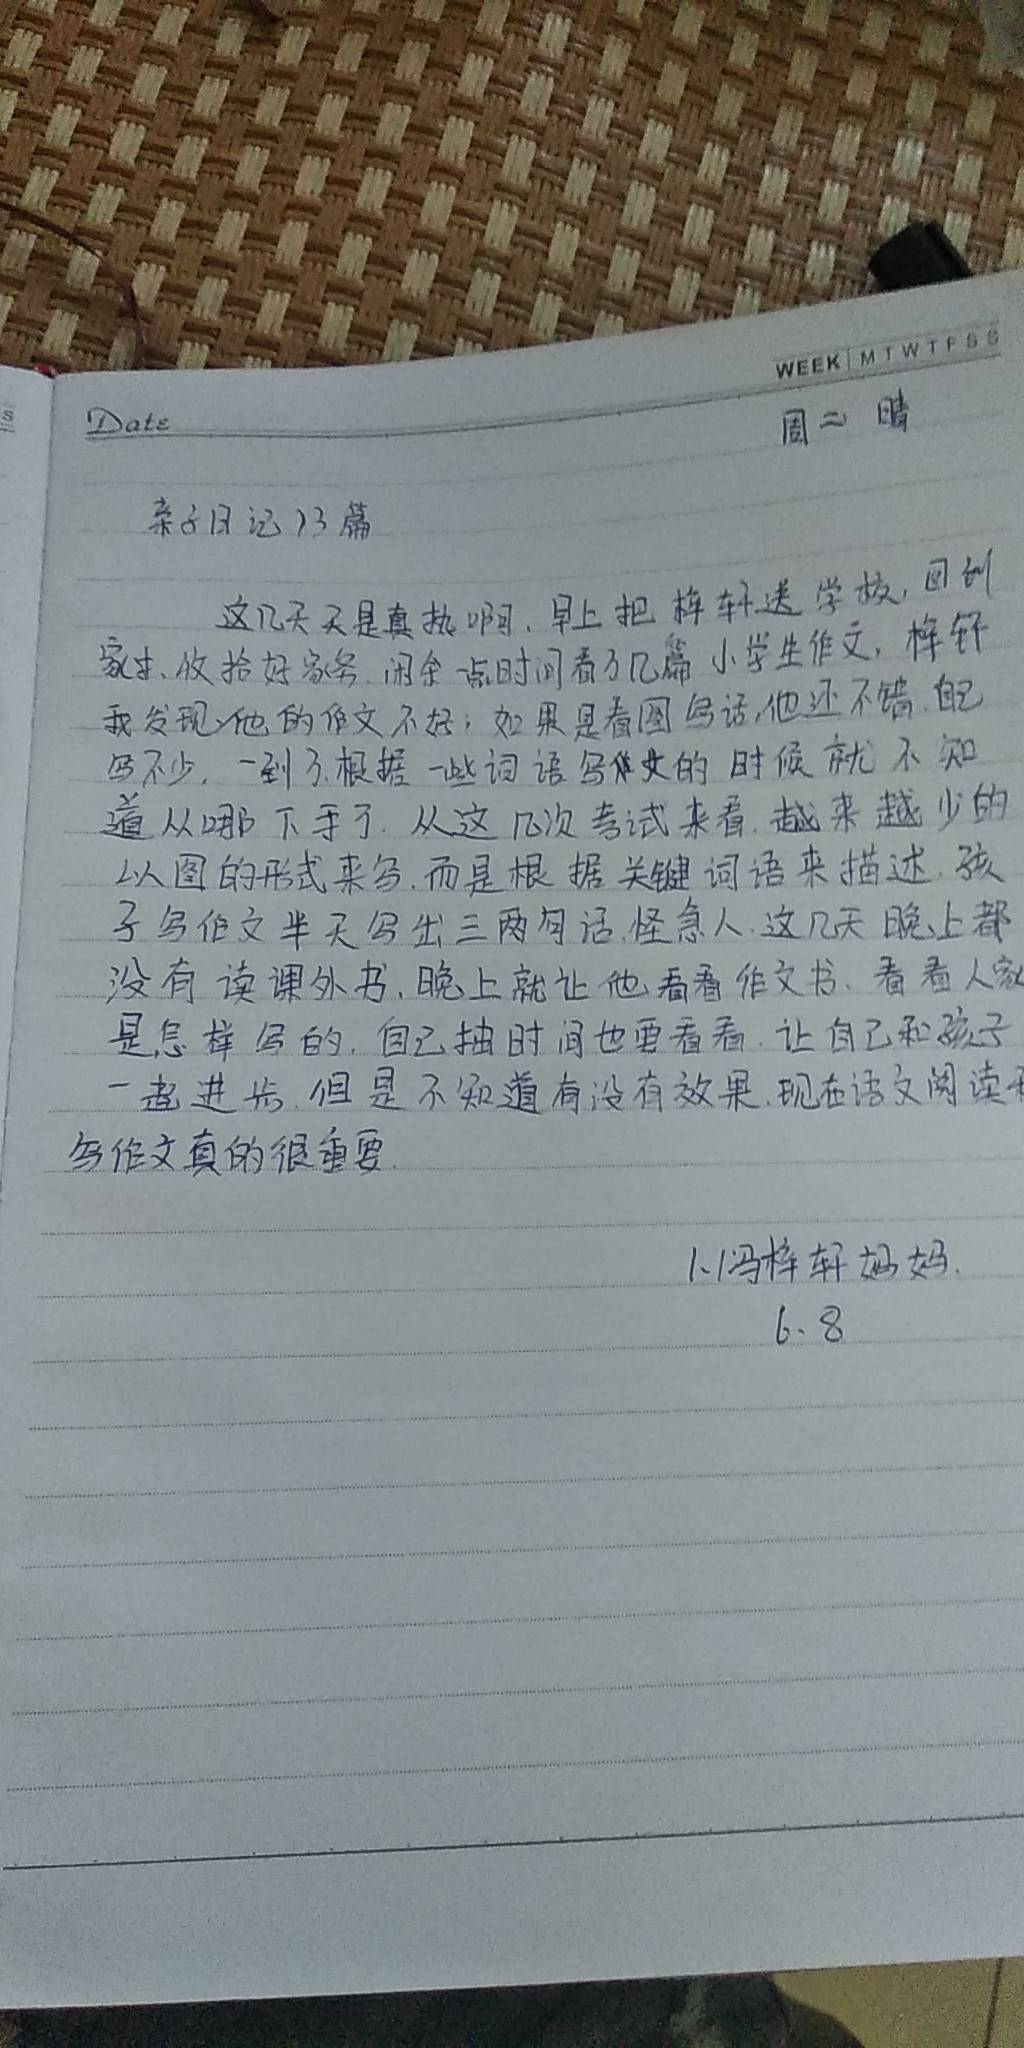 S
WEEK M T W T F S S
Date
周二 晴
亲子日记13篇
这几天天是真热啊,早上把梓轩送学校,回到
家里,收拾好家务.闲余一点时间看了几篇小学生作文,梓轩
我发现他的作文不好;如果是看图写话,他还不错.自己
写不少,一到了根据一些词语写作文的时候就不知
道从哪下手了.从这几次考试来看.越来越少的
以图的形式来写.而是根据关键词语来描述.孩
子写作文半天写出三两句话.怪急人.这几天晚上都
没有读课外书、晚上就让他看看作文书、看看人家
是怎样写的.自己抽时间也要看看.让自己和孩子
一起进步.但是不知道有没有效果.现在语文阅读和
写作文真的很重要.
1.1冯梓轩妈妈.
6.8